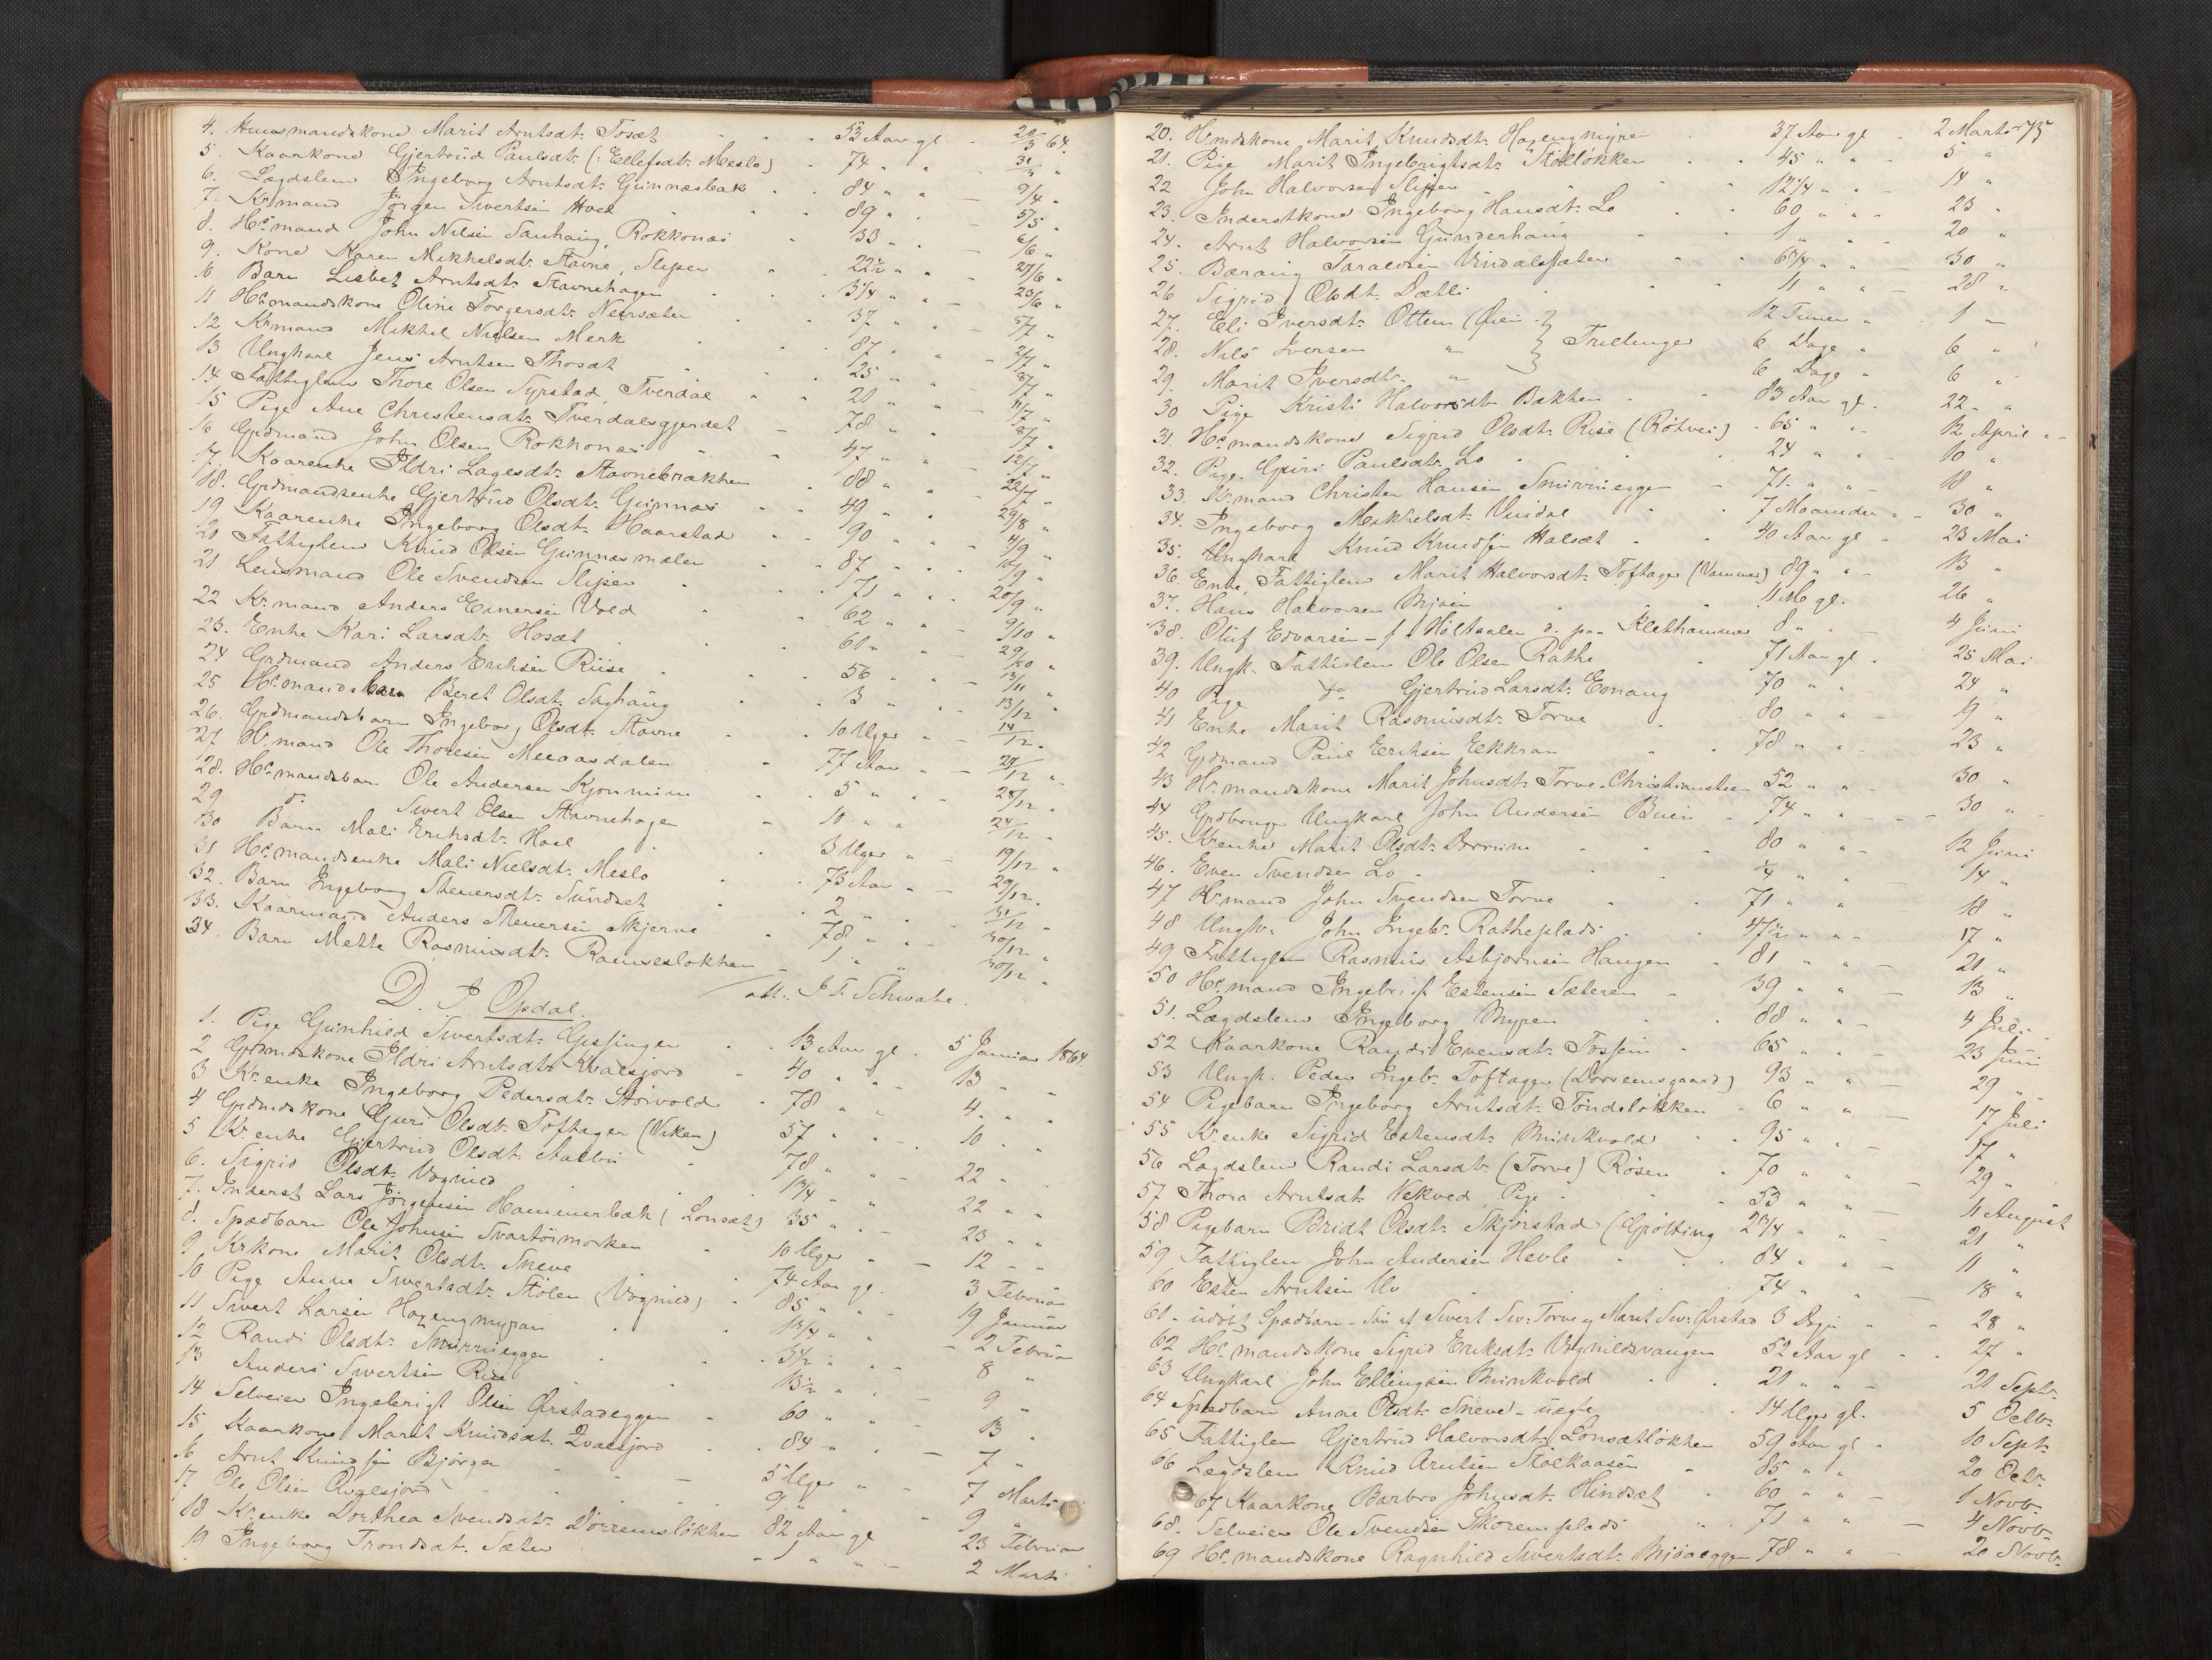 4. Huusmandskone Marit Arntsdt: Tosæt 53 Aar gl. 20/3 64.
5. Kaarkone Gjertrud Paulsdt: (: Ellefsdt: Meslo) 74 " " 31/3 "
6. Lægdslem Ingeborg Arntsdt: Gunnesbak 84 " " 9/4 "
7. Krmand Jörgen Sivertsen Hoel 89 " " 5/5 "
8. Hsmand John Nilsen Sauhaug, Rokkones 33 " " 6/6 "
9. Kone Karen Mikkelsdt: Stavne, Slipen 22½ " " 27/6 "
10 Barn Lisbet Arntsdt: Stavnehagen 3¼ " " 23/6 "
11 Hsmandskone Oline Torgersdt: 37 " " 5/7 "
12 Krmand Mikkel Nielsen Merk 87 " " 2/7 "
13 Ungkarl Jens Arntsen Thosæt 25 " " 8/7 "
14 Fattiglem Thore Olsen Syrstad, Tverdal 21 " " 11/7 "
15 Pige Ane Christensdt: Tverdalsgjerdet 78 " " 8/7 "
16 Grdmand John Olsen Rokkones 47 " " 12/7 "
17. Kaarenke Ildri Lagesdt: Stavnebrækken 88 " " 22/7 "
18. Grdmandsenke Gjertrud Olsdt: Gunnes 49 " " 29/8 "
19 Kaarenke Ingeborg Olsdt: Haarstad 90 " " 4/9 "
20 Fattiglem Knud Olsen Gunnesmælen 87 " " 10/9 "
21. Lensmand Ole Svendsen Slipen 71 " " 20/9 "
22 Krmand Anders Einersen Vold 62 " " 9/10 "
23. Enke Kari Larsdt: Hosæt 61 " " 29/10 "
24 Grdmand Anders Erichsen Riise 56 " " 13/11 "
25 Hsmandsbarn Beret Olsdt: Saghaug 3 " " 13/12 "
26. Grdmandsbarn Ingeborg Olsdt: Stavne 10 Uger " 14/12 "
27 Hsmand Ole Thoresen Meeaasdalen 77 Aar " 24/12 "
28. Hsmandsbarn Ole Andersen Kjønmoen 5 " " 28/12 "
29 do Sivert Olsen Stavnehagen 10 " " 24/12 "
30 Barn Mali Erichsdt: Hoel 3 Uger " 19/12 "
31 Hsmandsenke Mali Nielsdt: Meslo 75 Aar " 29/12 "
32. Barn Ingeborg Steuersdt: Sundset 2 " " 31/12 "
33. Kaarmand Anders Steuersen Skjerve 78 " " 30/12 "
34. Barn Mette Rasmusdt: Ramsesløkken 1 " " 30/12 "
att: J. F. Schwabe.
D. I. Opdal.
1. Pige Gunhild Sivertsdt: Gissinger 13 Aar gl. 5 Januar 1864.
2 Grdmdskone Ildri Arntsdt: Kvalsjord 40 " " 13 "
3 Kr.enke Ingeborg Pedersdt: Støivold 78 " " 4. "
4 Grdmdskone Guri Olsdt: Toftager (Viken) 57 " " 10 "
5 Kr.enke Gjertrud Olsdt: Aalbu 78 " " 22 "
6. Sigrid Olsdt: Vognild 1¾ " " 22 "
7. Inderst Lars Jörgensen Hammerbæk (Lønsæt) 35 " " 23 "
8. Spædbarn Ole Johnsen Svartøimorken 10 Uger " 12 "
9 Krkone Marit Olsdt: Sneve 74 Aar gl. 3 Februar
10 Pige Anne Sivertsdt: Stölen (Vognild) 85 " " 19 Januar
11 Sivert Larsen Hagengmyran 1¾ " " 2 Februar
12 Randi Olsdt: Smurrueggen 3½ " " 8 "
13 Anders Sivertsen Rise 13½ " " 9 "
14 Selveier Ingebrigt Olsen Ørstadeggen 60 " " 13 "
15 Kaarkone Marit Knudsdt: Kvalsjord 84 " " 7 "
16 Arnt Knudsen Björgen 5 Uger " 7 Marts
17 Ole Olsen Kvalsjord 9 " " 9 "
18 Kr.enke Dorthea Svendsdt: Dörremslökken 82 Aar gl 23 Februar
19 Ingeborg Trondsdt: Sæter 1 " " 2 Marts
20. Hsmdskone Marit Knudsdt: Hagengmyren 37 Aar gl 2 Marts
21. Pige Marit Ingebrigtsdt: Stølløkken 45 " " 5 "
22 John Halvorsen Slipen 13¼ " " 14 "
23. Inderstkone Ingeborg Hansdt: Lo 60 " " 23 "
24. Arnt Halvorsen Gunderhaug 1 " " 20 "
25. Bæraug Taraldsen Vindalssæter 6¾ " " 30 "
26 Sigrid Olsdt: Dætli 11 " " 28 "
27. Eli Iversdt: Ottem (Øien) 12 Timer " 1 "
28. Nils Iversen " Trillinger 6 Dage " 6 "
29. Marit Iversdt: " 6 Dage " 6 "
30 Pige Kristi Halvorsdt: Bakken 83 Aar gl. 22 "
31. Hsmandskone Sigrid Olsdt: Rise (Rötvei) 65 " " 12 April "
32. Pige Guri Paulsdt: Lo 24 " " 10 "
33. Krmand Christen Hansen Smurrueggen 71 " " 18 "
34. Ingeborg Mikkelsdt: Vindal 7 Maaneder " 30 "
35. Ungkarl Knud Knudsen Halsæt 40 Aar gl 23 Mai
36. Enke, Fattiglem Marit Halvorsdt: Toftager (Vammer) 89 " " 13 "
37. Hans Halvorsen Mjøen 11 M gl. 26 "
38. Oluf Edvarsen - f. i Holtaalen d. paa Klethammer 8 " 4 Juni
39. Ungk. Fattiglem Ole Olsen Rathe 71 Aar gl. 25 Mai
40 Pige do Gjertrud Larsdt: Emaug 70 " " 24 "
41 Enke Marit Rasmusdt: Torve 80 " " 19 "
42 Grdmand Paul Erichsen Ekkran 78 " " 23 "
43 Hsmandskone Marit Johnsdt: Torve-Christiansteen 52 " " 30 "
44 Grdbruger Ungkarl John Andersen Buen 74 " " 30 "
45. Kr.enke Marit Olsdt: Dörrum 80 " " 12 Juni
46. Even Svendsen Lo ¼ " " 14 "
47 Krmand John Svendsen Torve 71 " " 18 "
48 Ungk. John Ingebr. Ratheplads 47½ " " 17 "
49 Fattiglem Rasmus Asbjørnsen Haugen 81 " " 21 "
50 Hsmand Ingebrigt Estensen Sæteren 39 " " 13 "
51. Lægdslem Ingeborg Myren 88 " " 4 Juli
52 Kaarkone Randi Evensdt: 65 " " 23 Juni
53 Ungk. Peder Ingebr. Toftager (Dörremsgaard) 93 " " 29 "
54 Pigebarn Ingeborg Arntsdt: Töndeløkken 6 " " 17 Juli
55 Kr.enke Sigrid Estensdt: Munkvold 95 " " 17 "
56 Lægdslem Randi Larsdt: (Torve) Røsen 70 " " 29 "
57 Thora Arntsdt: Vekved, Pige 53 " " 11 August
58 Pigebarn Bridt Olsdt: Skjørstad (Grötting 2¾ " " 21 "
59 Fattiglem John Andersen Hevle 84 " " 11 "
60 Esten Arntsen Uv 74 " " 18 "
61 - udöbt Spædbarn - Søn af Sivert Siv: Torve og Marit Siv: Ørstad 3 Dage " 28 "
62 Hsmandskone Sigrid Eriksdt: Vognildsvangen 52 Aar gl 27 "
63 Ungkarl John Ellingsen Munkvold 21 " " 21 Sept.
64 Spædbarn Anne Olsdt: Sneve - uægte 14 Uger gl. 5 Octb.
65 Fattiglem Gjertrud Halvorsdt: Lønsætløkken 59 Aar gl 10 Sept:
66 Lægdslem Knud Arntsen Stølkaasen 85 " " 20 Oct.
67 Kaarkone Barbro Johnsdt: Hindsæt 60 " " 1 Novb.
68. Selveier Ole Svendsen Skoremsplads 71 " " 4 Novb.
69 Hsmandskone Ragnhild Sivertsdt: Mjøaeggen 78 " " 20 Novb.